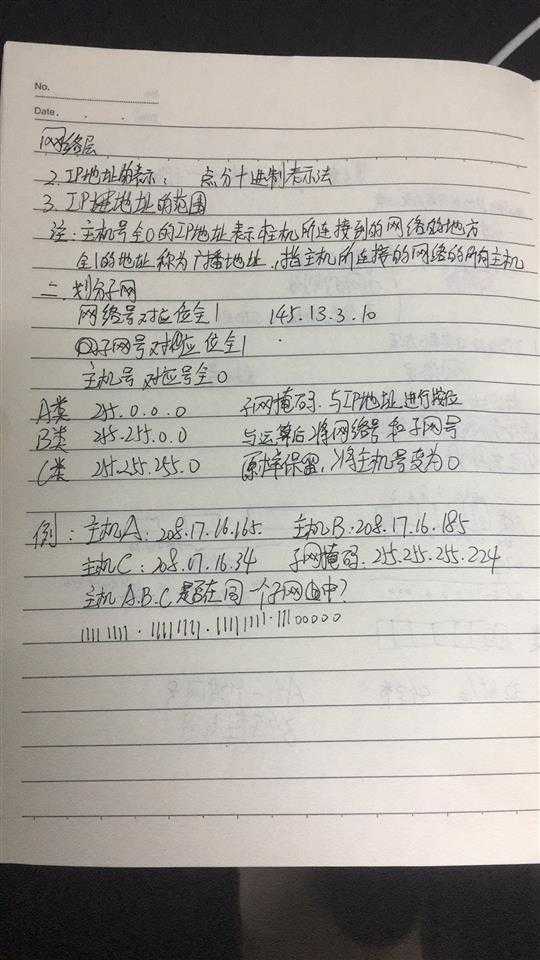 No.
Date.
网络层
2. IP地址的表示： 点分十进制表示法
3. IP地址的范围
注：主机号全0的IP地址表示本主机所连接到的网络的地方
全1的地址称为广播地址，指主机所连接的网络的所有主机
二. 划分子网
网络号对应位全1 145.13.3.10
子网号对应位全1
主机号对应号全0
A类 255.0.0.0 子网掩码：与IP地址进行按位
B类 255.255.0.0 与运算后，将网络号和子网号
C类 255.255.255.0 原样保留，将主机号变为0
例：主机A：208.17.16.165 主机B：208.17.16.185
主机C：208.07.16.34 子网掩码：255.255.255.224
主机A.B.C是否在同一个子网中？
11111111.11111111.11111111.11100000